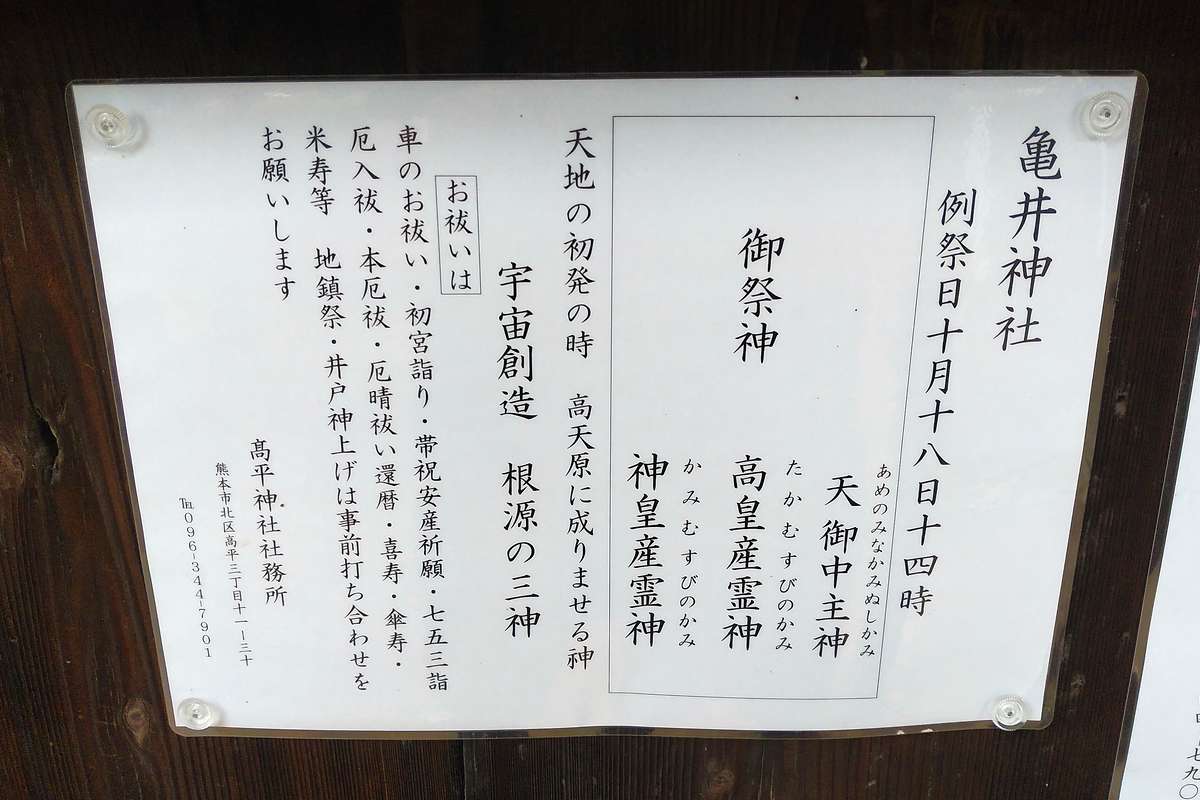 亀井神社
例祭日十月十八日十四時
御祭神
あめのみなかみぬしかみ
天御中主神
たかむすびのかみ
高皇産霊神
かみむすびのかみ
神皇産霊神
天地の初発の時　高天原に成りませる神
宇宙創造　根源の三神
お祓いは
車のお祓い・初宮詣り・帯祝安産祈願・七五三詣
厄入祓・本厄祓・厄晴祓い還暦・喜寿・傘寿・
米寿等　地鎮祭・井戸神上げは事前打ち合わせを
お願いします
髙平神社社務所
熊本市北区高平三丁目十一ー三十
℡096-344-7901